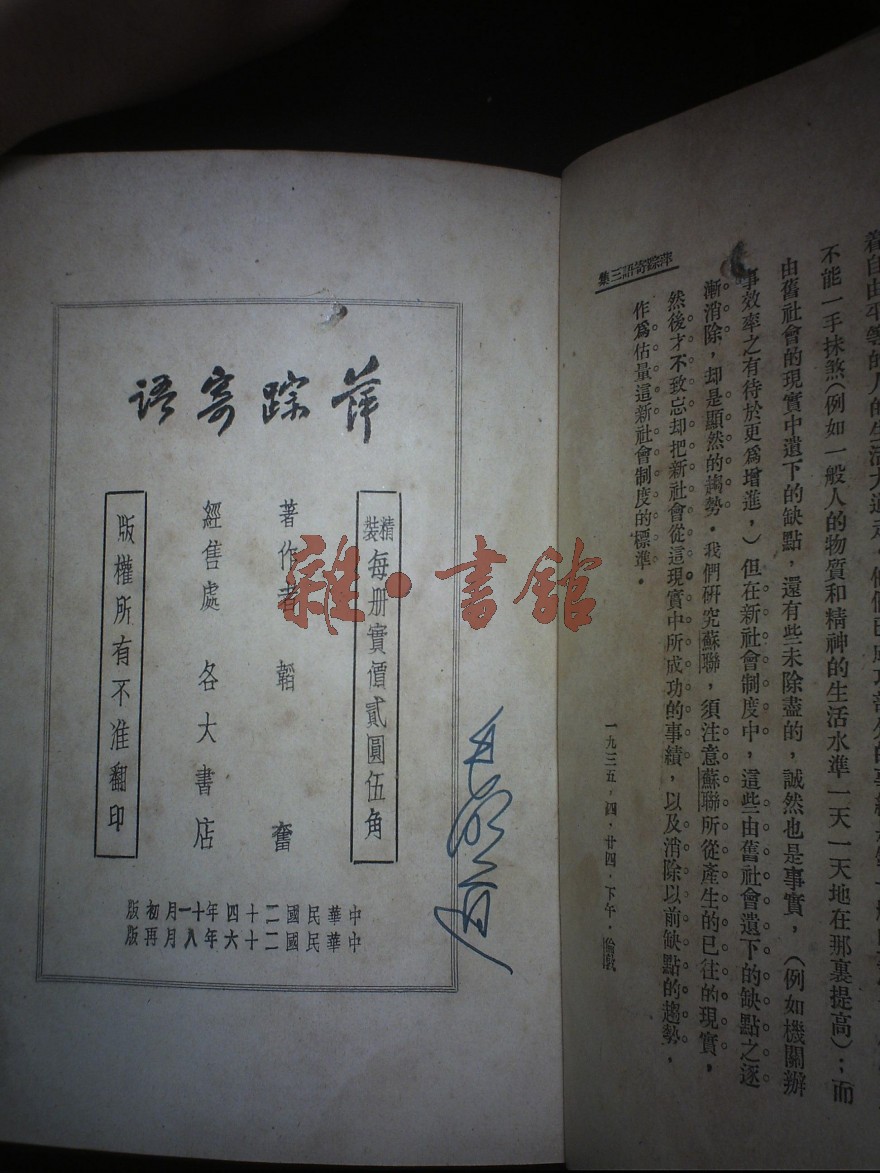 萍踪寄語三集
着自由平等的人的生活大道走。他們已成功部分的事績
不能一手抹煞(例如一般人的物質和精神的生活水準一天一天地在那裏提高)；而
由舊社會的現實中遺下的缺點，還有些未除盡的，誠然也是事實，(例如機關辦
事效率之有待於更爲增進，)但在新社會制度中，這些由舊社會遺下的缺點之逐
漸消除，却是顯然的趨勢。我們研究蘇聯，須注意蘇聯所從產生的已往的現實，
然後才不致忘却把新社會從這現實中所成功的事績，以及消除以前缺點的趨勢，
作爲估量這新社會制度的標準。
一九三五，四，廿四，下午，倫敦
萍踪寄語
精裝每册實價貳圓伍角
著作者 韜奮
經售處 各大書店
版權所有不准翻印
中華民國二十四年十一月初版
中華民國二十六年八月再版
雜·書館